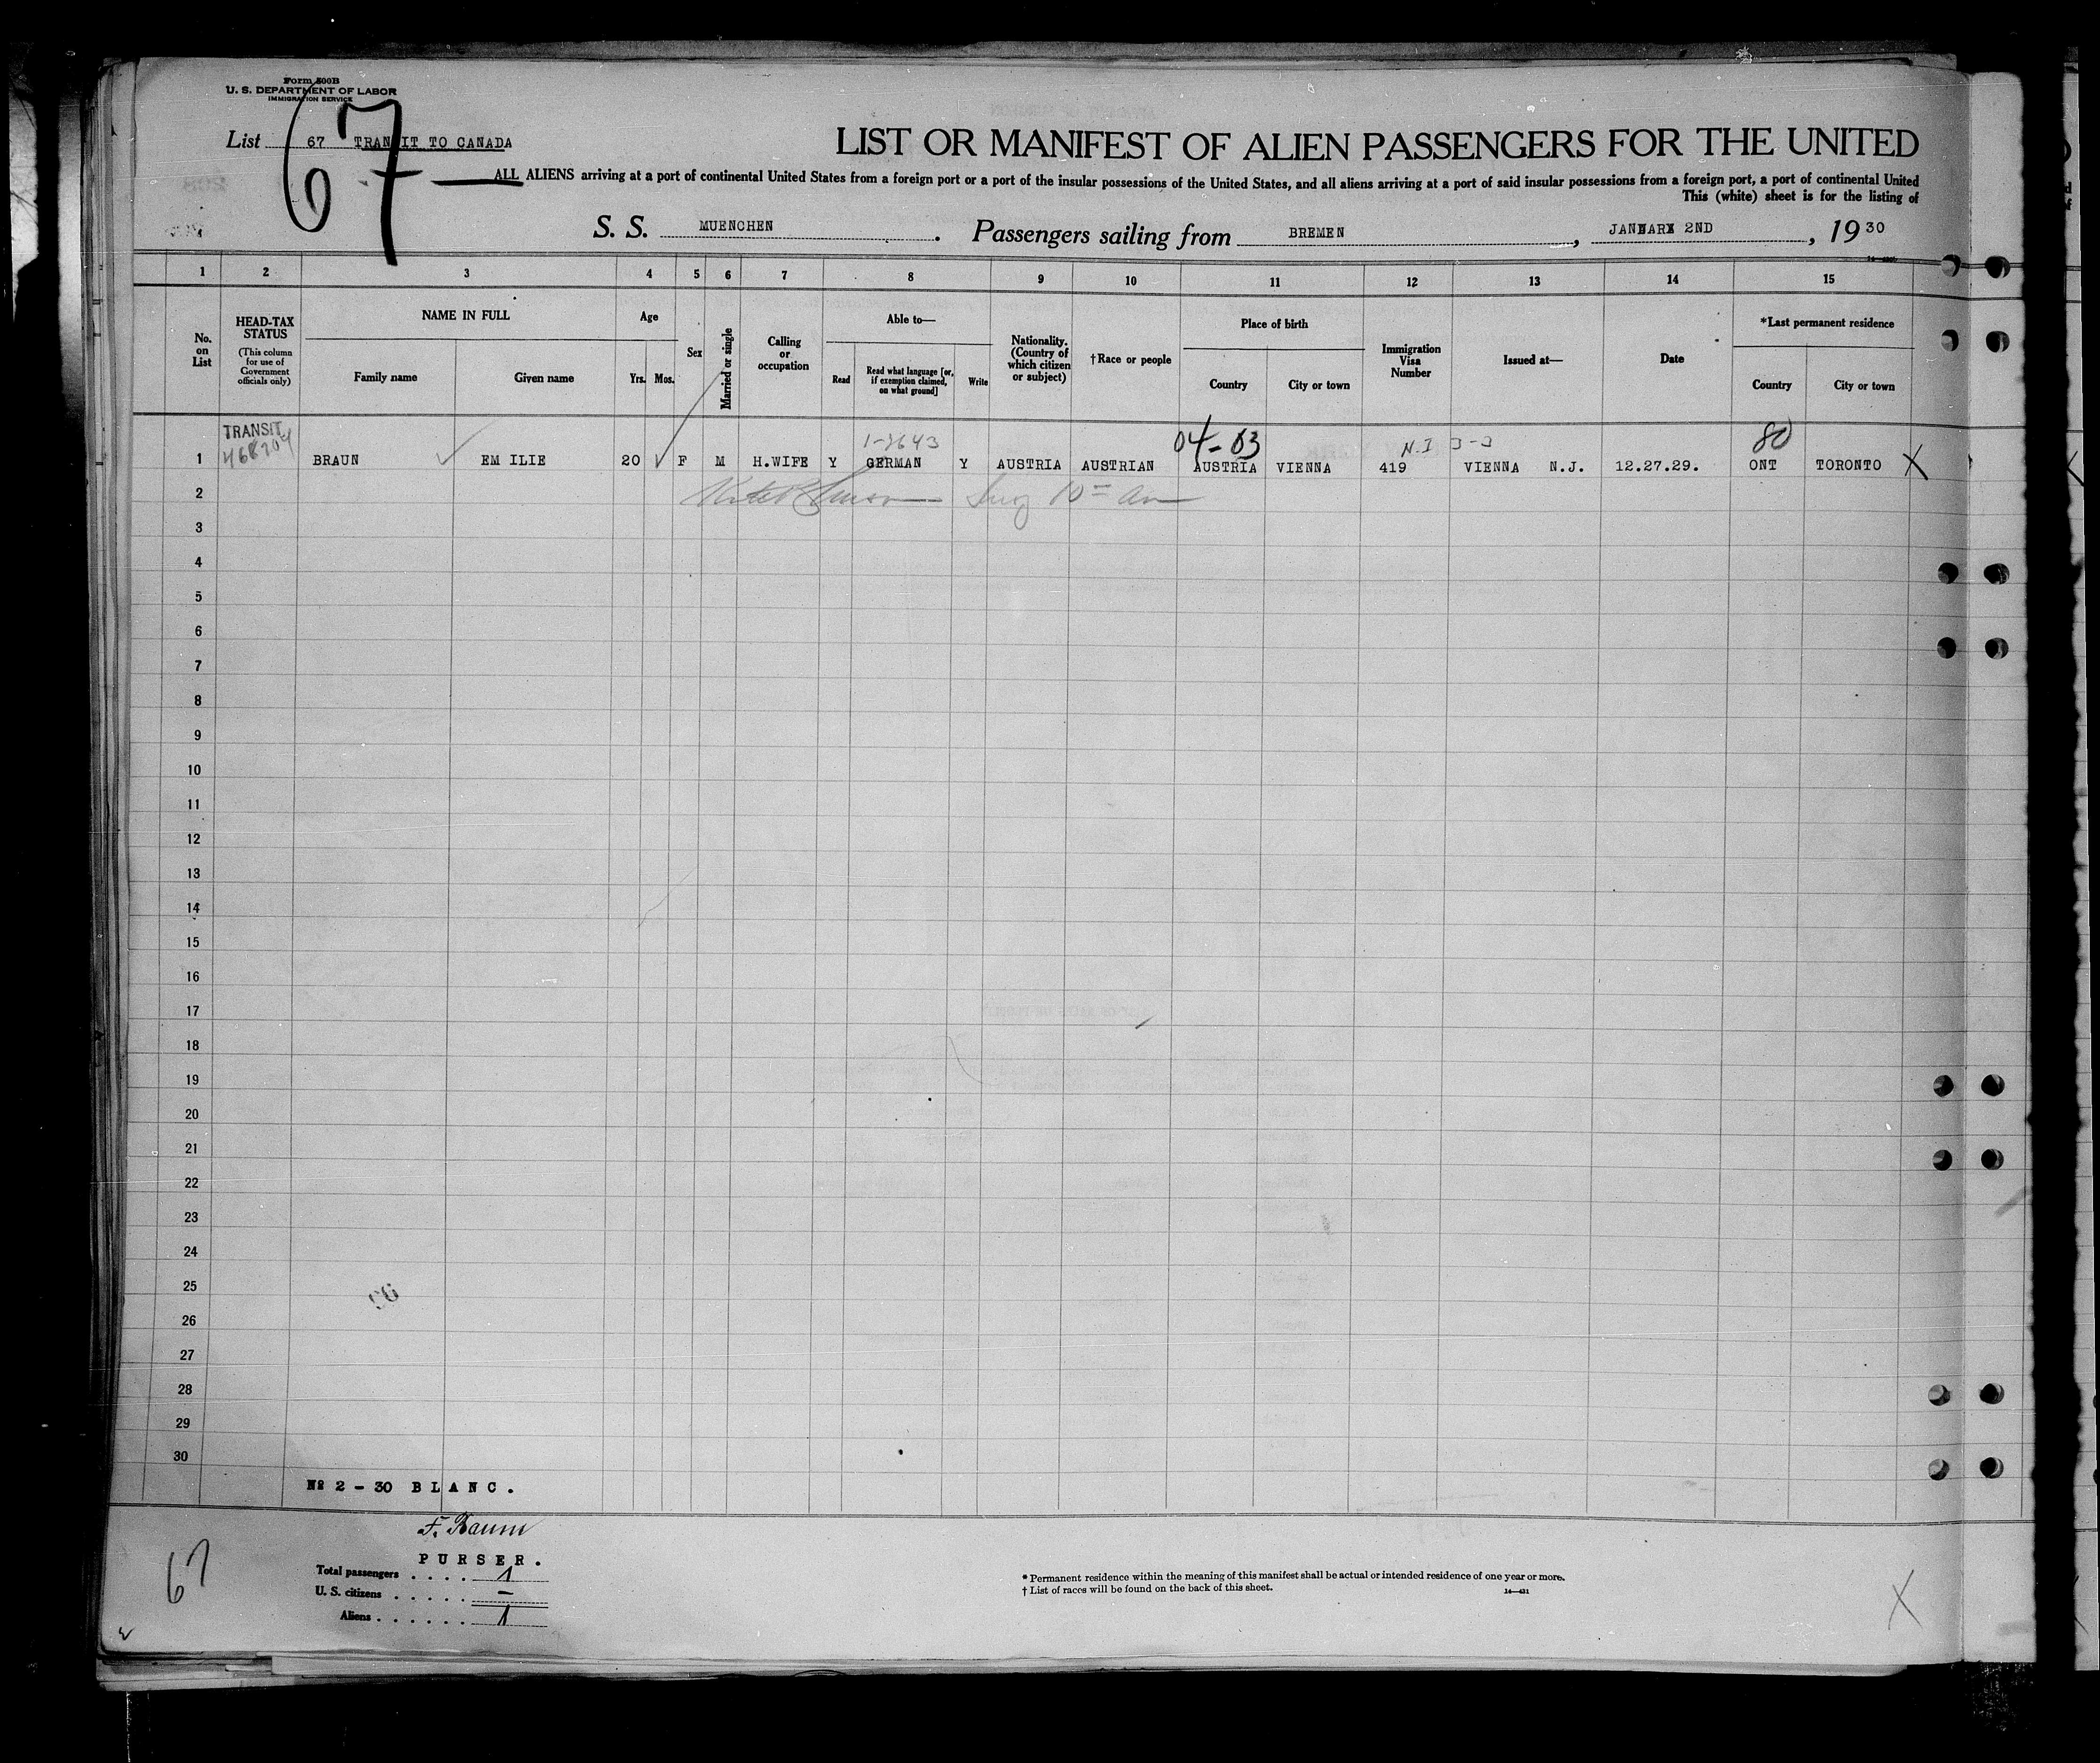 Form 500B
U. S. DEPARTMENT OF LABOR
IMMIGRATION SERVICE
67
List 67 TRANSIT TO CANADA
LIST OR MANIFEST OF ALIEN PASSENGERS FOR THE UNITED
ALL ALIENS arriving at a port of continental United States from a foreign port or a port of the insular possessions of the United States, and all aliens arriving at a port of said insular possessions from a foreign port, a port of continental United
This (white) sheet is for the listing of
S. S. MUENCHEN. Passengers sailing from BREMEN, JANUARY 2ND, 19 30
1 2 3 4 5 6 7 8 9 10 11 12 13 14 15
No. on List
HEAD-TAX STATUS (This column for use of Government officials only)
NAME IN FULL
Family name Given name
Age
Yrs. Mos.
Sex
Married or single
Calling or occupation
Able to—
Read
Read what language [or, if exemption claimed, on what ground]
Write
Nationality. (Country of which citizen or subject)
†Race or people
Place of birth
Country City or town
Immigration Visa Number
Issued at—
Date
*Last permanent residence
Country City or town
TRANSIT 1-2643 04-03 N.I 3-3 80
468704
1 BRAUN EM ILIE 20 F M H.WIFE Y GERMAN Y AUSTRIA AUSTRIAN AUSTRIA VIENNA 419 VIENNA N.J. 12.27.29. ONT TORONTO X
2
3
4
5
6
7
8
9
10
11
12
13
14
15
16
17
18
19
20
21
22
23
24
25
26
27
28
29
30
Nº 2 - 30 BLANC.
F. Baum
PURSER.
67
Total passengers . . . . 1
U. S. citizens . . . . . —
Aliens . . . . . . 1
* Permanent residence within the meaning of this manifest shall be actual or intended residence of one year or more.
† List of races will be found on the back of this sheet.
14—431
X